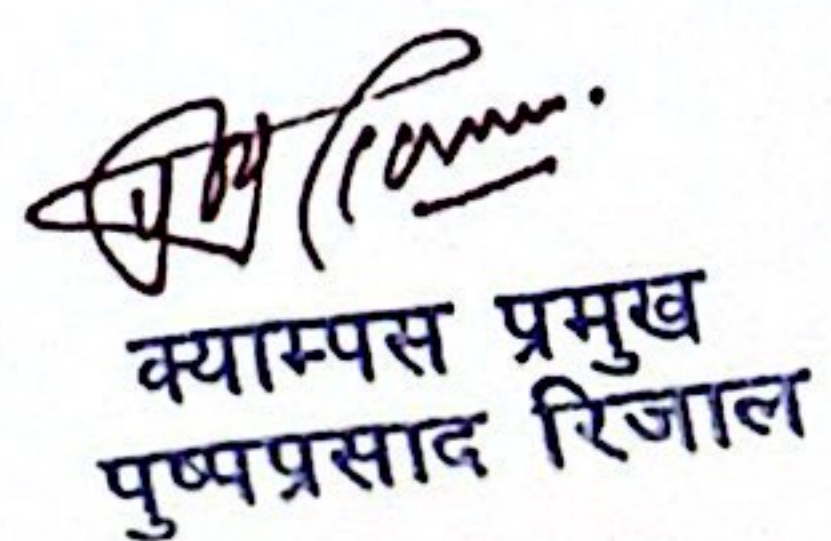 क्याम्पस प्रमुख
पुष्पप्रसाद रिजाल